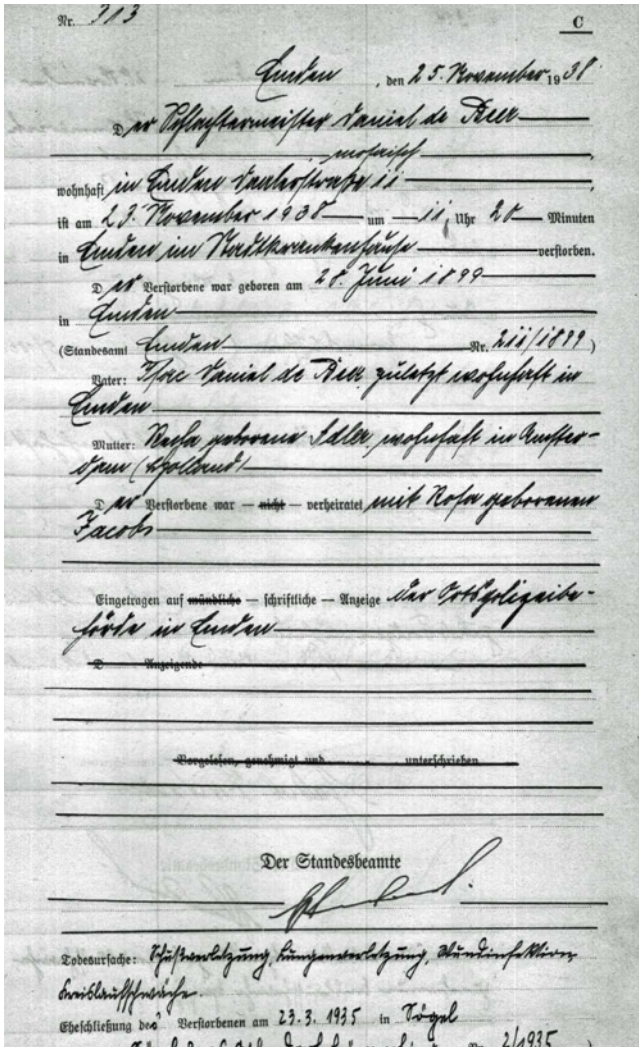 Nr. 313 C
Emden, den 25. November 1938
Der Schlachtermeister Daniel de Beer
, mosaisch,
wohnhaft in Emden Daalerstraße 11,
ist am 23. November 1938 um 11 Uhr 20 Minuten
in Emden im Stadtkrankenhause verstorben.
Der Verstorbene war geboren am 28. Juni 1899
in Emden
(Standesamt Emden Nr. 211/1899)
Vater: Isaac Daniel de Beer zuletzt wohnhaft in
Emden
Mutter: Recha geborene Adler, wohnhaft in Amster-
dam (Holland)
Der Verstorbene war — nicht — verheiratet mit Rosa geborenen
Jacobs
Eingetragen auf mündliche — schriftliche — Anzeige der Ortspolizeibe-
hörde in Emden
D Anzeigende
Vorgelesen, genehmigt und unterschrieben
Der Standesbeamte
Todesursache: Schußverletzung, Lungenverletzung, Wundinfektion,
Kreislaufschwäche.
Eheschließung des Verstorbenen am 23.3.1935 in Sögel
Nr. 2/1935